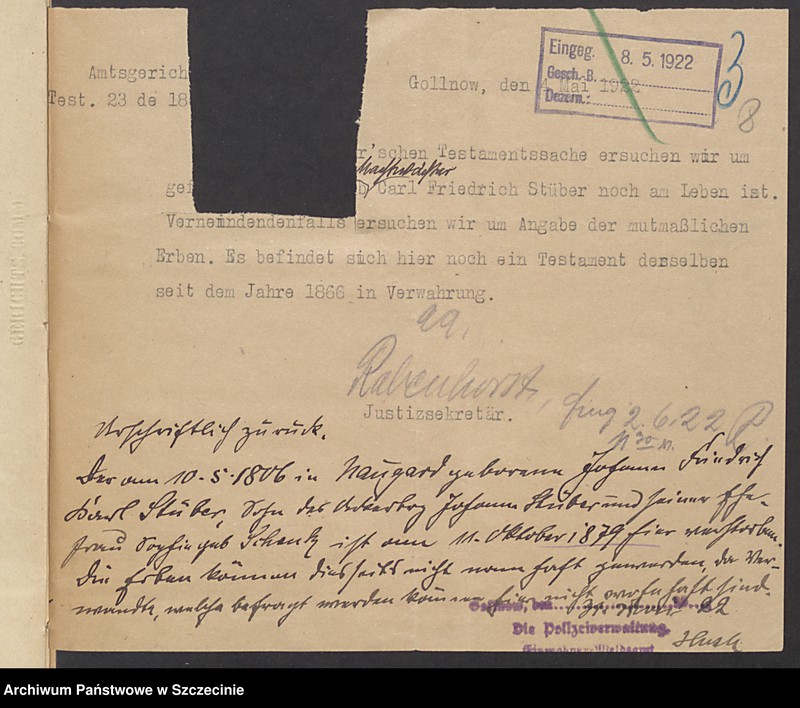 Eingeg. 8. 5. 1922
Gesch.-B.
Dezern.:
3
8
Amtsgerich
Gollnow, den 4 Mai 1922
Test. 23 de 18
r'schen Testamentssache ersuchen wir um
gef
Carl Friedrich Stüber noch am Leben ist.
Verneindendenfalls ersuchen wir um Angabe der mutmaßlichen
Erben. Es befindet sich hier noch ein Testament desselben
seit dem Jahre 1866 in Verwahrung.
Rabenhorst,
Justizsekretär.
2. 6. 22
Urschriftlich zurück.
Der am 10. 5. 1806 in Naugard geborene Johann Friedrich
Karl Stüber, Sohn des Johann Stüber und seiner Ehe-
frau Sophie geb Schenk ist am 11. Oktober 1879 hier verstorben.
Die Erben können diesseits nicht namhaft gemacht werden, da Ver-
wandte, welche befragt werden können hier nicht wohnhaft sind.
Gollnow, den 22
Die Polizeiverwaltung.
Einwohner-Meldeamt
GERICHTS
Archiwum Państwowe w Szczecinie